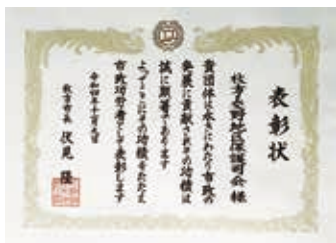 表彰状
枚方交野地区保護司会 様
貴団体は永きにわたり市政の
発展に貢献されその功績は
誠に顕著であります
よってここにその功績をたたえ
市政功労者として表彰します
令和四年十一月九日
枚方市長 伏見 隆